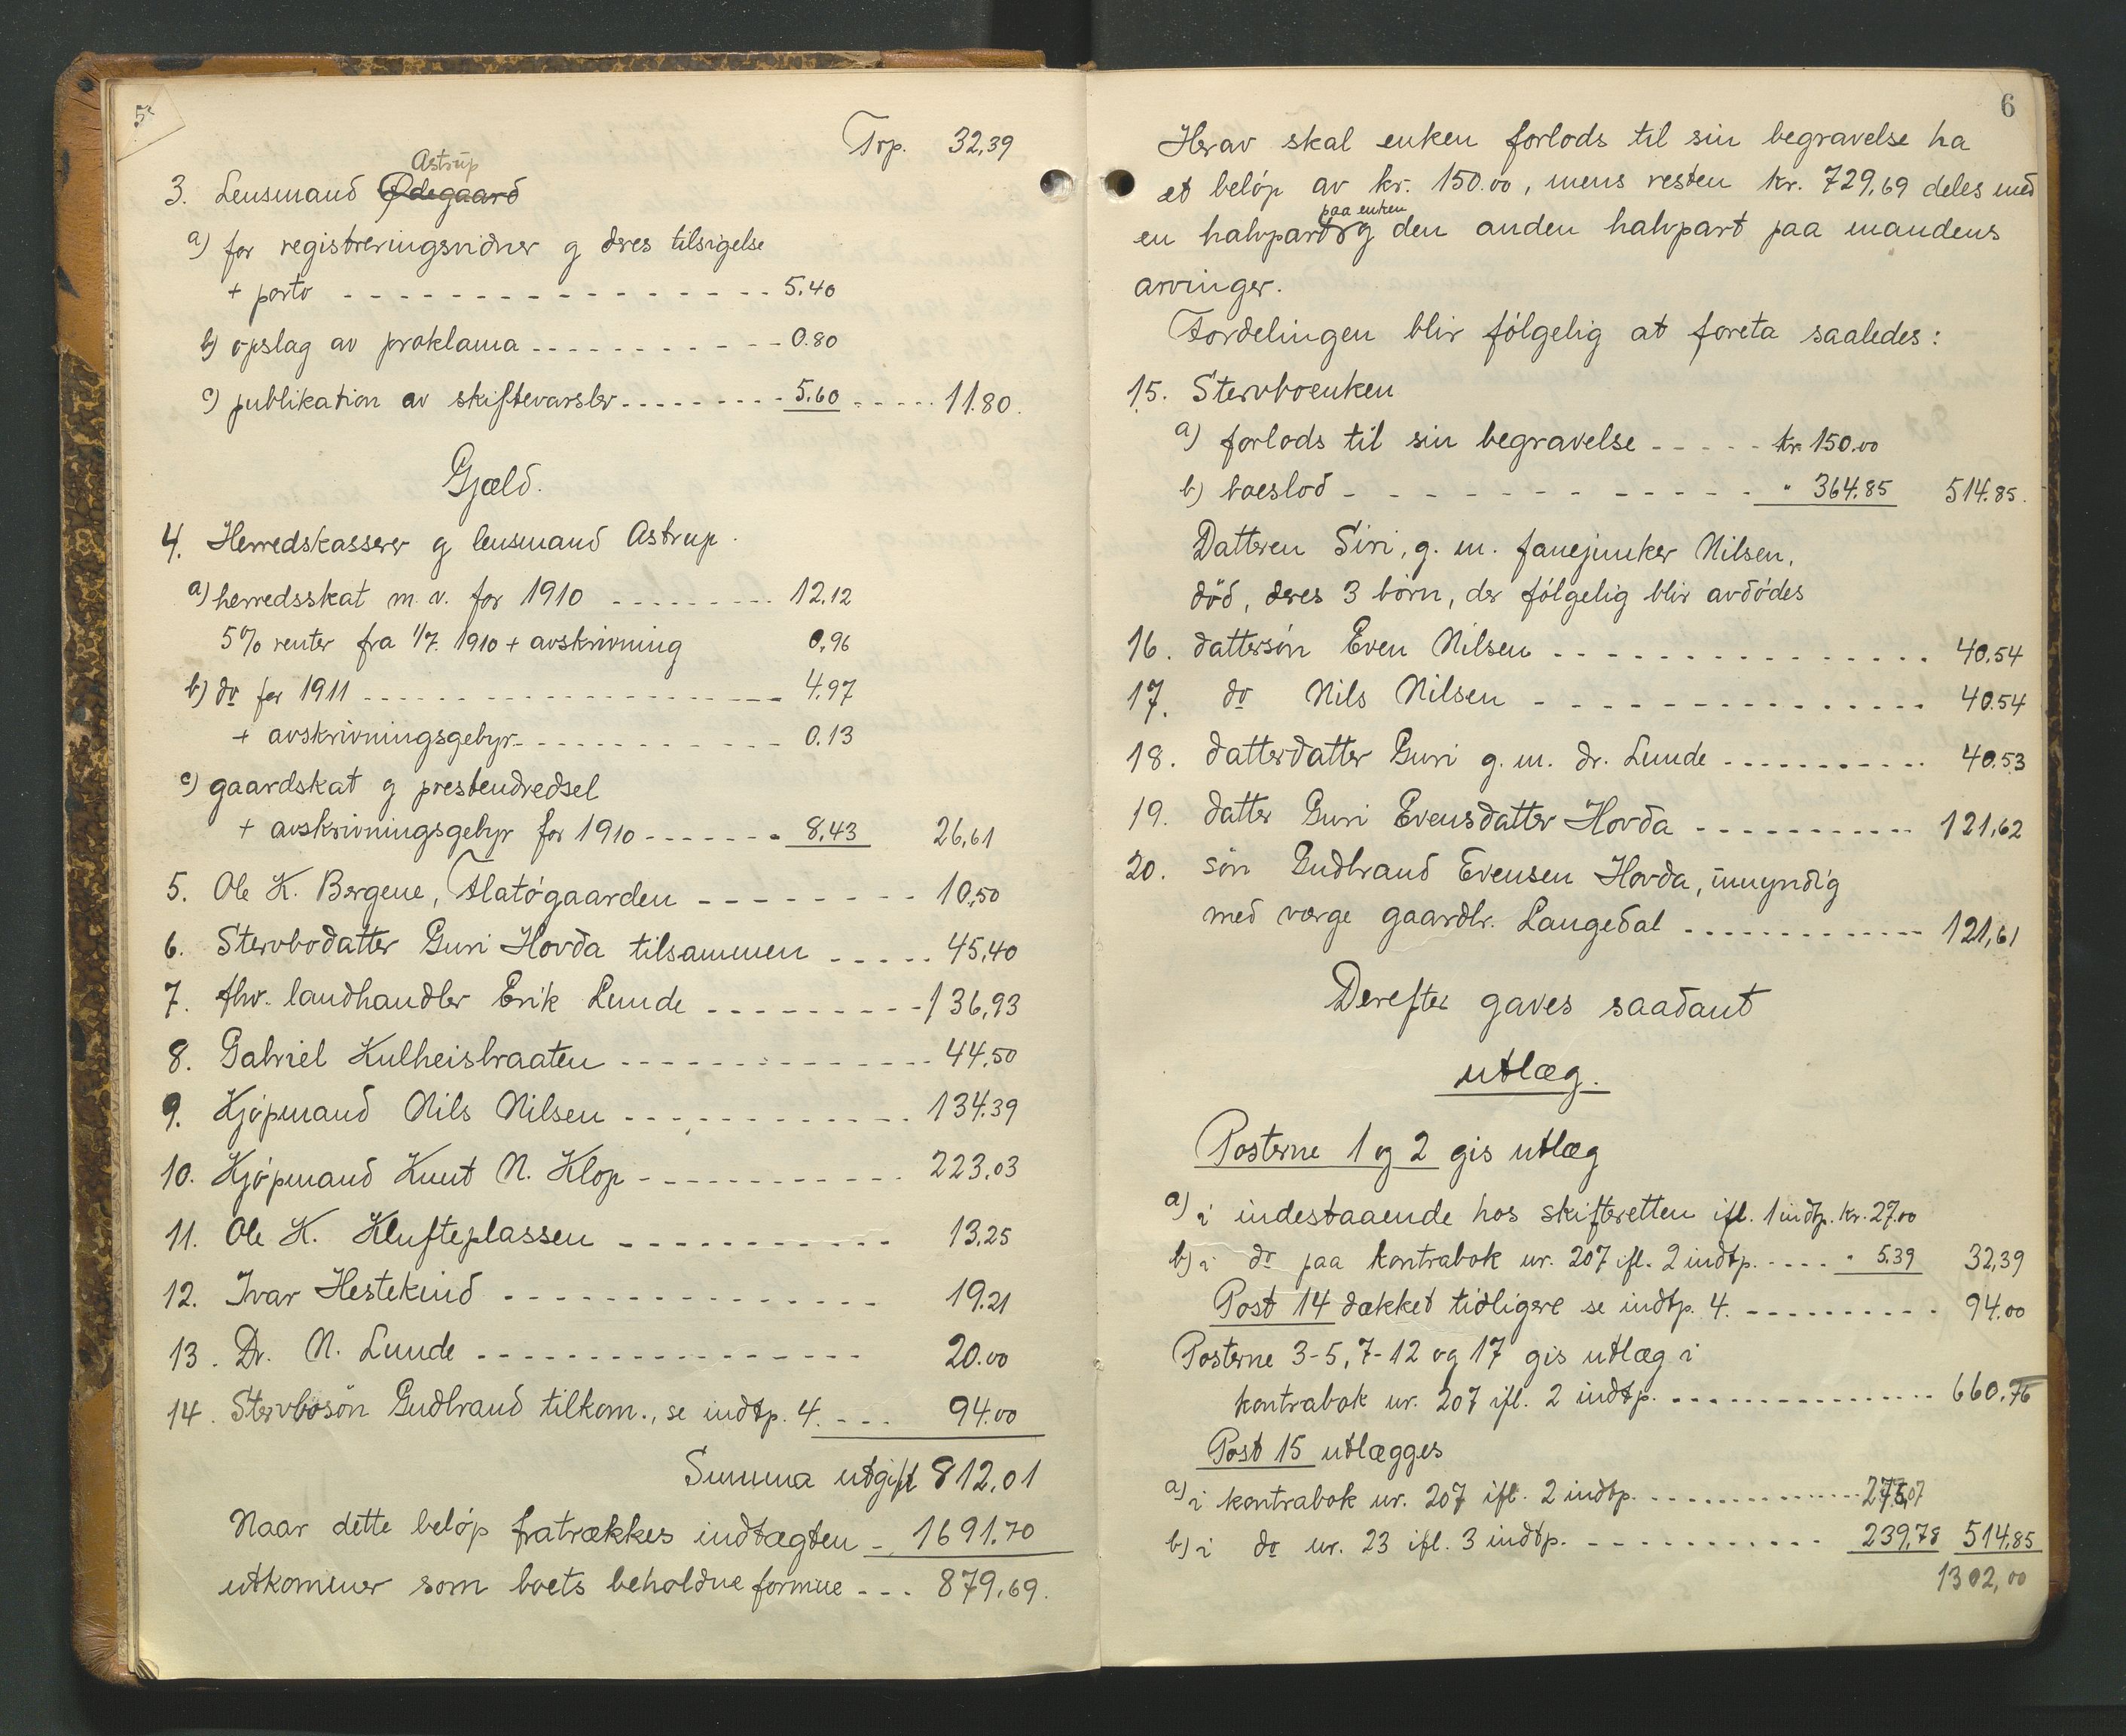 5
Trp. 32,39
Astrup
3. Lensmand Ødegaard
a) for registreringsvidner g deres tilsigelse
+ porto - - - - - - - - - - - - - - - - 5.40
b) opslag av proklama - - - - - - - - - - 0.80
c) publikation av skiftevarsler - - - - - - - - - 5.60 - - - - - 11.80.
Gjæld.
4. Herredskasserer g lensmand Astrup.
a) herredsskat m. v. for 1910 - - - - - - - - - 12.12
5% renter fra 1/7. 1910 + avskrivning 0.96
b) do for 1911 - - - - - - - - - - - - - - - - - 4.97
+ avskrivningsgebyr - - - - - - - - - - - - 0.13
c) gaardskat g prestendredsel
+ avskrivningsgebyr for 1910 - - - - - - - 8,43 26,61
5. Ole K. Bergene, Flatøgaarden - - - - - - - - 10,50
6. Stervbodatter Guri Hovda tilsammen - - - - - 45,40
7. fhv. landhandler Erik Lunde - - - - - - - - - 136,93
8. Gabriel Kulheisbraaten - - - - - - - - - - - - - 44,50
9. Kjøpmand Nils Nilsen - - - - - - - - - - - - 134.39
10. Kjøpmand Knut N. Klop - - - - - - - - - - - 223,03
11. Ole K. Klufteplassen - - - - - - - - - - - 13,25
12. Ivar Hestekind - - - - - - - - - - - - - - - 19.21
13. Dr. N. Lunde - - - - - - - - - - - - - - - - - 20.00
14. Stervbosøn Gudbrand tilkom., se indtp. 4. - - - 94.00
Summa utgift 812,01
Naar dette beløp fratrækkes indtægten - 1691.70
utkommer som boets beholdne formue - - - 879,69.
6
Herav skal enken forlods til sin begravelse ha
et beløp av kr. 150.00, mens resten kr. 729,69 deles med
paa enken
en halvpart og den anden halvpart paa mandens
arvinger.
Fordelingen blir følgelig at foreta saaledes:
15. Stervboenken
a) forlods til sin begravelse - - - - - kr. 150.00
b) boeslod - - - - - - - - - - - - - " 364.85 514.85.
Datteren Siri, g. m. fanejunker Nilsen,
død, deres 3 børn, der følgelig blir avdødes
16. dattersøn Even Nilsen - - - - - - - - - - - - - - 40.54
17. do Nils Nilsen - - - - - - - - - - - - - - - 40.54
18. datterdatter Guri g. m. dr. Lunde - - - - - - - - - - - 40.53
19. datter Guri Evensdatter Hovda - - - - - - - - - - - 121,62
20. søn Gudbrand Evensen Hovda, umyndig
med værge gaardbr. Langedal - - - - - - - - - - - - - 121,61
Derefter gaves saadant
utlæg.
Posterne 1 og 2 gis utlæg
a) i indestaaende hos skifteretten ifl. 1 indtp. kr. 27.00
b) i do paa kontrabok nr. 207 ifl. 2 indtp. - - - - " 5.39 32,39
Post 14 dækket tidligere se indtp. 4. - - - - - - - - - - 94.00
Posterne 3-5, 7-12 og 17 gis utlæg i
kontrabok nr. 207 ifl. 2 indtp. - - - - - - - - - - - - - - 660.76
Post 15 utlægges
a) i kontrabok nr. 207 ifl. 2 indtp. - - - - - - - - - - - - - 275,07
b) i do nr. 23 ifl. 3 indtp. - - - - - - - - - - - 239,78 514,85
1302,00